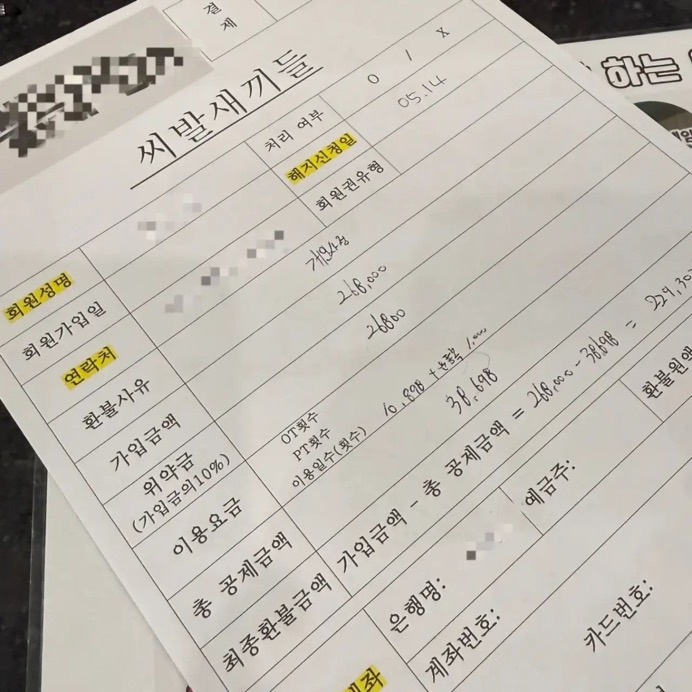 결
제
하는
씨발새끼들
처리 여부 O / X
해지신청일 05.14
회원권유형
회원성명
회원가입일
연락처
환불사유 개인사정
가입금액 268,000
위약금 26800
(가입금의10%)
이용요금
OT횟수
PT횟수
이용일수(횟수) 10.898 +
총 공제금액 38,698
최종환불금액 가입금액 - 총 공제금액 = 268,000 - 38698 =
환불원액
은행명:
예금주:
계좌번호:
카드번호: